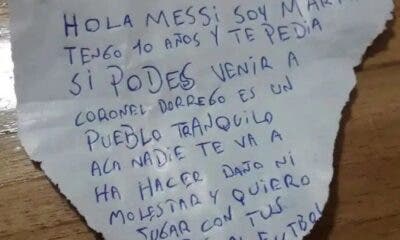 HOLA MESSI SOY
TENGO 10 AÑOS Y TE PEDIA
SI PODES VENIR A
CORONEL DORREGO ES UN
PUEBLO TRANQUILO
ACA NADIE TE VA A
HA HACER DAÑO NI
MOLESTAR Y QUIERO
JUGAR CON TUS
FUTBOL